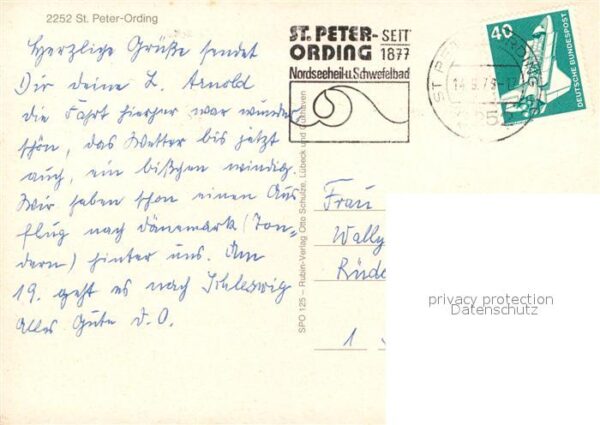 2252 St. Peter-Ording
Herzliche Grüße sendet
Dir deine L. Arnold
die Fahrt hierher war wunder
schön, das Wetter bis jetzt
auch, ein bißchen windig.
Wir haben schon einen Aus
flug nach Dänemark (Ton-
dern) hinter uns. Am
19. geht es nach Schleswig
Alles Gute d. O.
SPO 125 – Rubin-Verlag Otto Schulze, Lübeck und Cuxhaven
ST. PETER- SEIT
ORDING 1877
Nordseeheil-u.Schwefelbad
40
DEUTSCHE BUNDESPOST
Frau
Wally
Rüde
1
privacy protection
Datenschutz